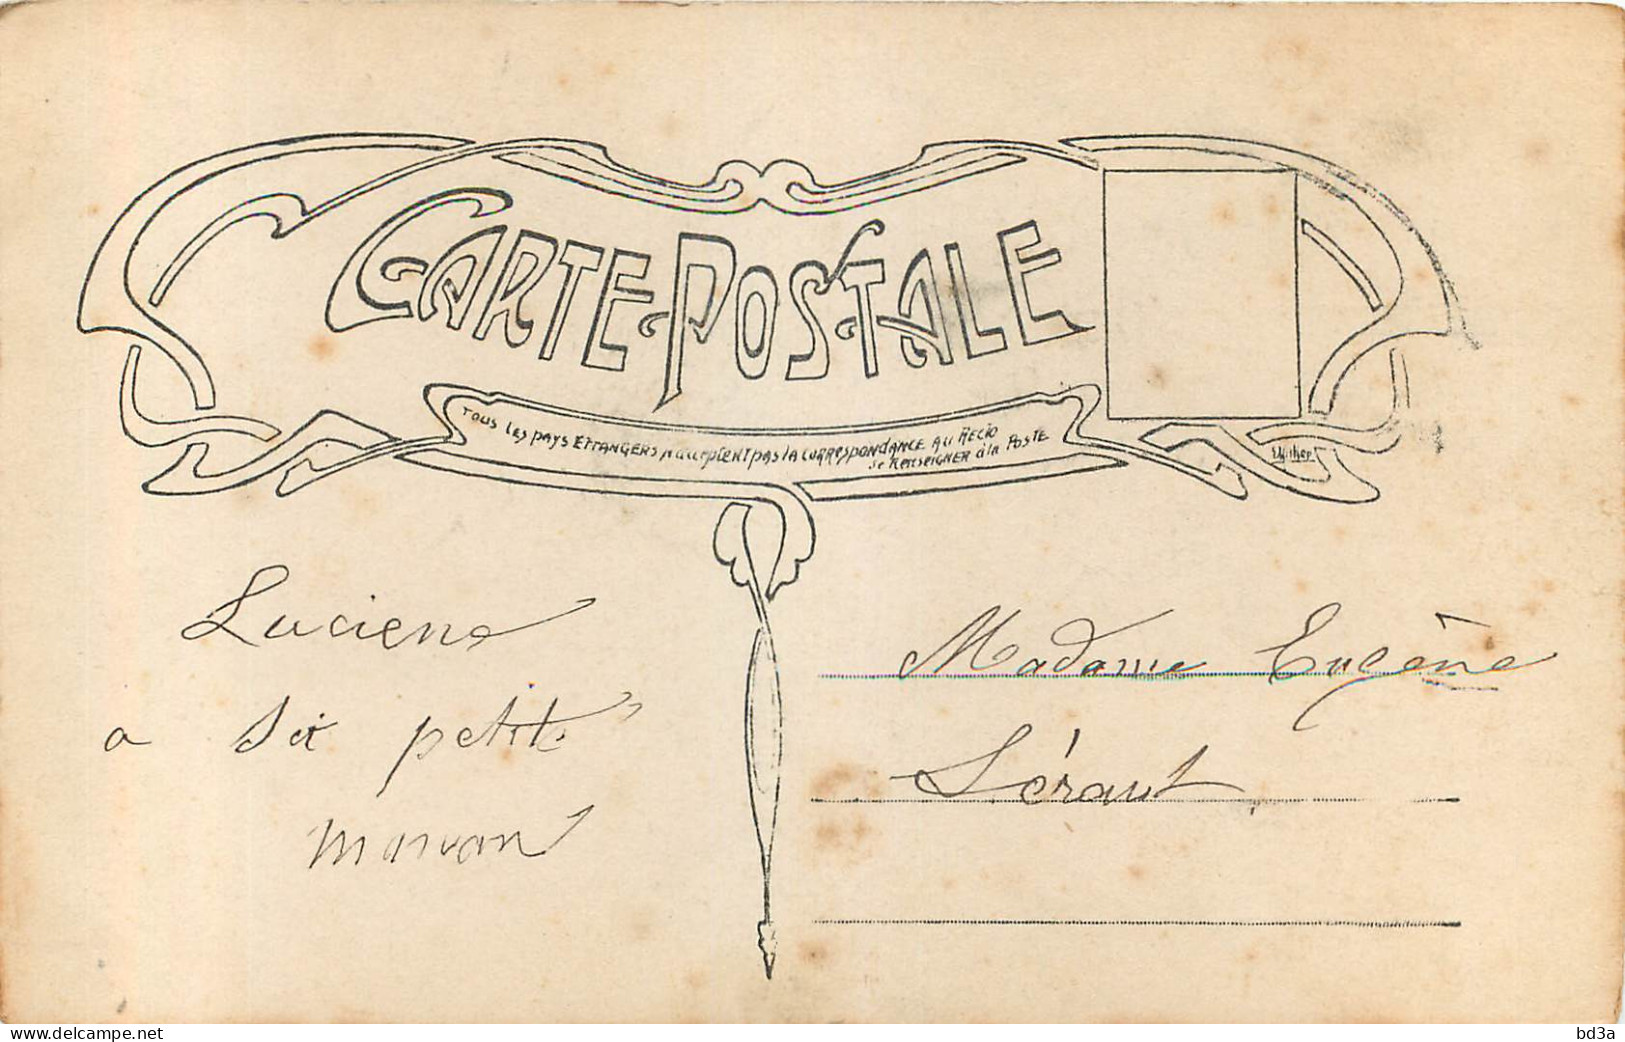 CARTE-POSTALE
TOUS LES PAYS ETRANGERS N'acceptent pas la CORRESPONDANCE AU RECTO
Se RENSEIGNER à la POSTE
Luciene
a sa petite
maman
Madame Eugène
Léraut
www.delcampe.net
bd3a